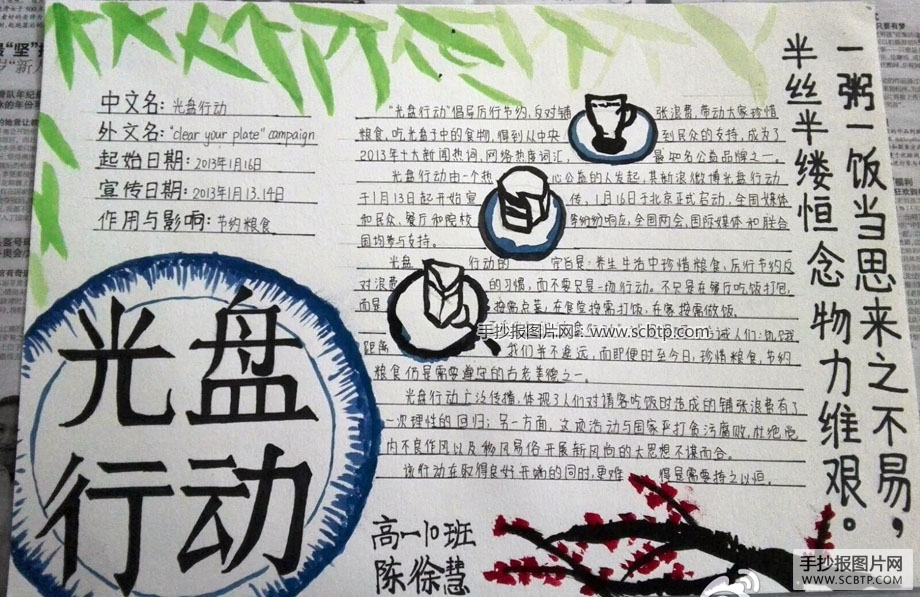 中文名：光盘行动
外文名："clear your plate" campaign
起始日期：2013年1月16日
宣传日期：2013年1月13.14日
作用与影响：节约粮食
光盘
行动
"光盘行动"倡导厉行节约,反对铺张浪费,带动大家珍惜
粮食、吃光盘子中的食物,得到从中央到民众的支持,成为了
2013年十大新闻热词、网络热度词汇,最知名公益品牌之一。
光盘行动由一个热心公益的人发起,其新浪微博光盘行动
于1月13日起开始宣传,1月16日于北京正式启动,全国媒体
和民众、餐厅和院校等纷纷响应,全国两会、国际媒体和联合
国均参与支持。
光盘行动的宗旨是：养生生活中珍惜粮食、厉行节约反
对浪费的习惯,而不要只是一场行动。不只是在餐厅吃饭打包,
而是按需点菜,在食堂按需打饭,在家按需做饭。
手抄报图片网：www.scbtp.com
诫人们：饥饿
距离我们并不遥远,而即便时至今日,珍惜粮食,节约
粮食仍是需要遵守的古老美德之一。
光盘行动广泛传播,体现了人们对请客吃饭时造成的铺张浪费有了
一次理性的回归；另一方面,这项活动与国家严打贪污腐败,杜绝党
内不良作风以及移风易俗开展新风尚的大思想不谋而合。
该行动在取得良好开端的同时,更难得是需要持之以恒.
一粥一饭当思来之不易，
半丝半缕恒念物力维艰。
高一10班
陈徐慧
手抄报图片网
WWW.SCBTP.COM